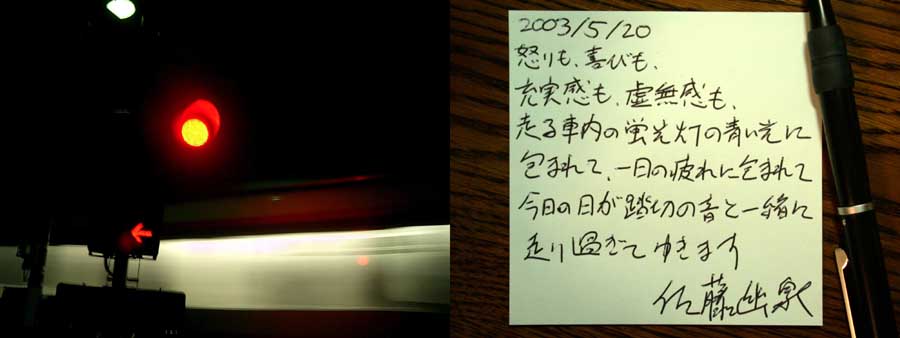 2003/5/20
怒りも、喜びも、
充実感も、虚無感も、
走る車内の蛍光灯の青い光に
包まれて、一日の疲れに包まれて
今日の日が踏切の音と一緒に
走り過ぎてゆきます
佐藤幽泉